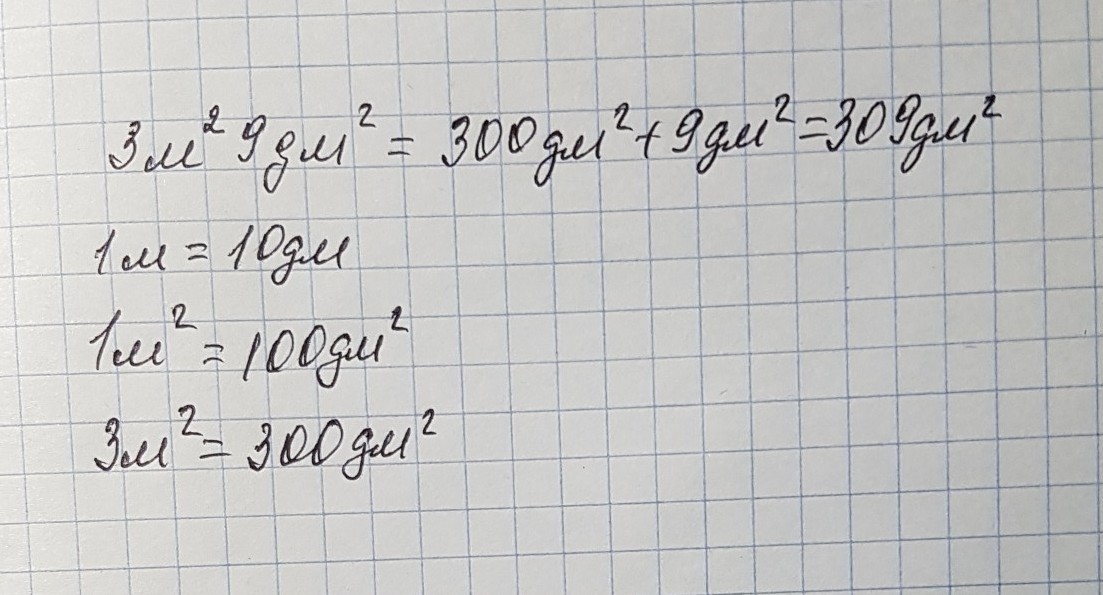 3м² 9дм² = 300дм² + 9дм² = 309дм²
1м = 10дм
1м² = 100дм²
3м² = 300дм²